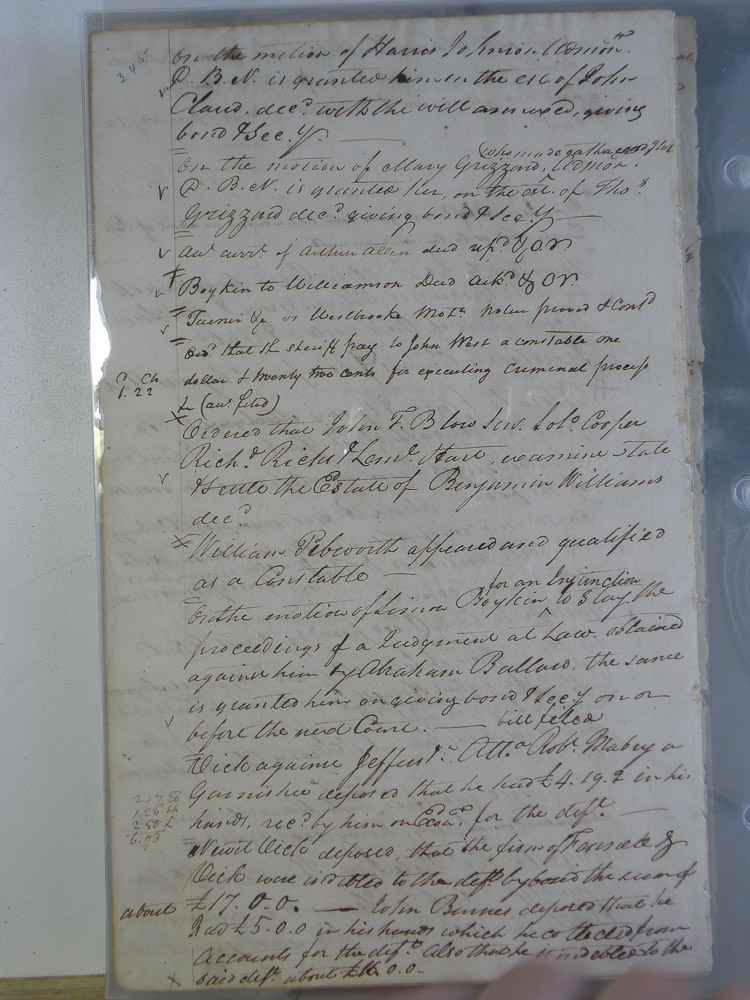 345
On the motion of Harris Johnson Admon.
D. B. N. is granted him on the est. of John
Claud, decd. with the will annexed, giving
bond & Secy
(who made oath according to law)
On the motion of Mary Grizzard, Admon.
D. B. N. is granted her, on the est. of Thos.
Grizzard decd. giving bond & Secy
acct. currt. of Arthur Allen decd. & OR.
Boykin to Williamson Deed ackd. & OR.
Turner & vs Westbrooke Moto. notice proved & Contd
Ord. that the sheriff pay to John West a constable one
dollar & twenty two cents for executing criminal process
D Cts
1.22
(acct. filed)
Ordered that John F. Blow Solo. Cooper
Richd. Ricks & Leml. Hart, examine state
& settle the Estate of Benjamin Williams
decd.
William Pebworth appeared and qualified
as a Constable
for an Injunction
On the motion of Simon Boykin to Stay the
proceedings of a Judgment at Law. obtained
against him by Abraham Ballard, the same
is granted him on giving bond & Secy on or
before the next Court. bill filed
Vick against Jeffers Atta. Robt. Mabry a
Garnishee deposed that he had £4.19.2 in his
hands, recd. by him on for the deft.
Newit Vick deposed, that the firm of &
Vick were indebted to the deft by bond the sum of
about £17.0.0. John Binnes deposed that he
had £5.0.0 in his hands which he collected from
accounts for the deft. also that he is indebted to the
said deft. about £16.0.0